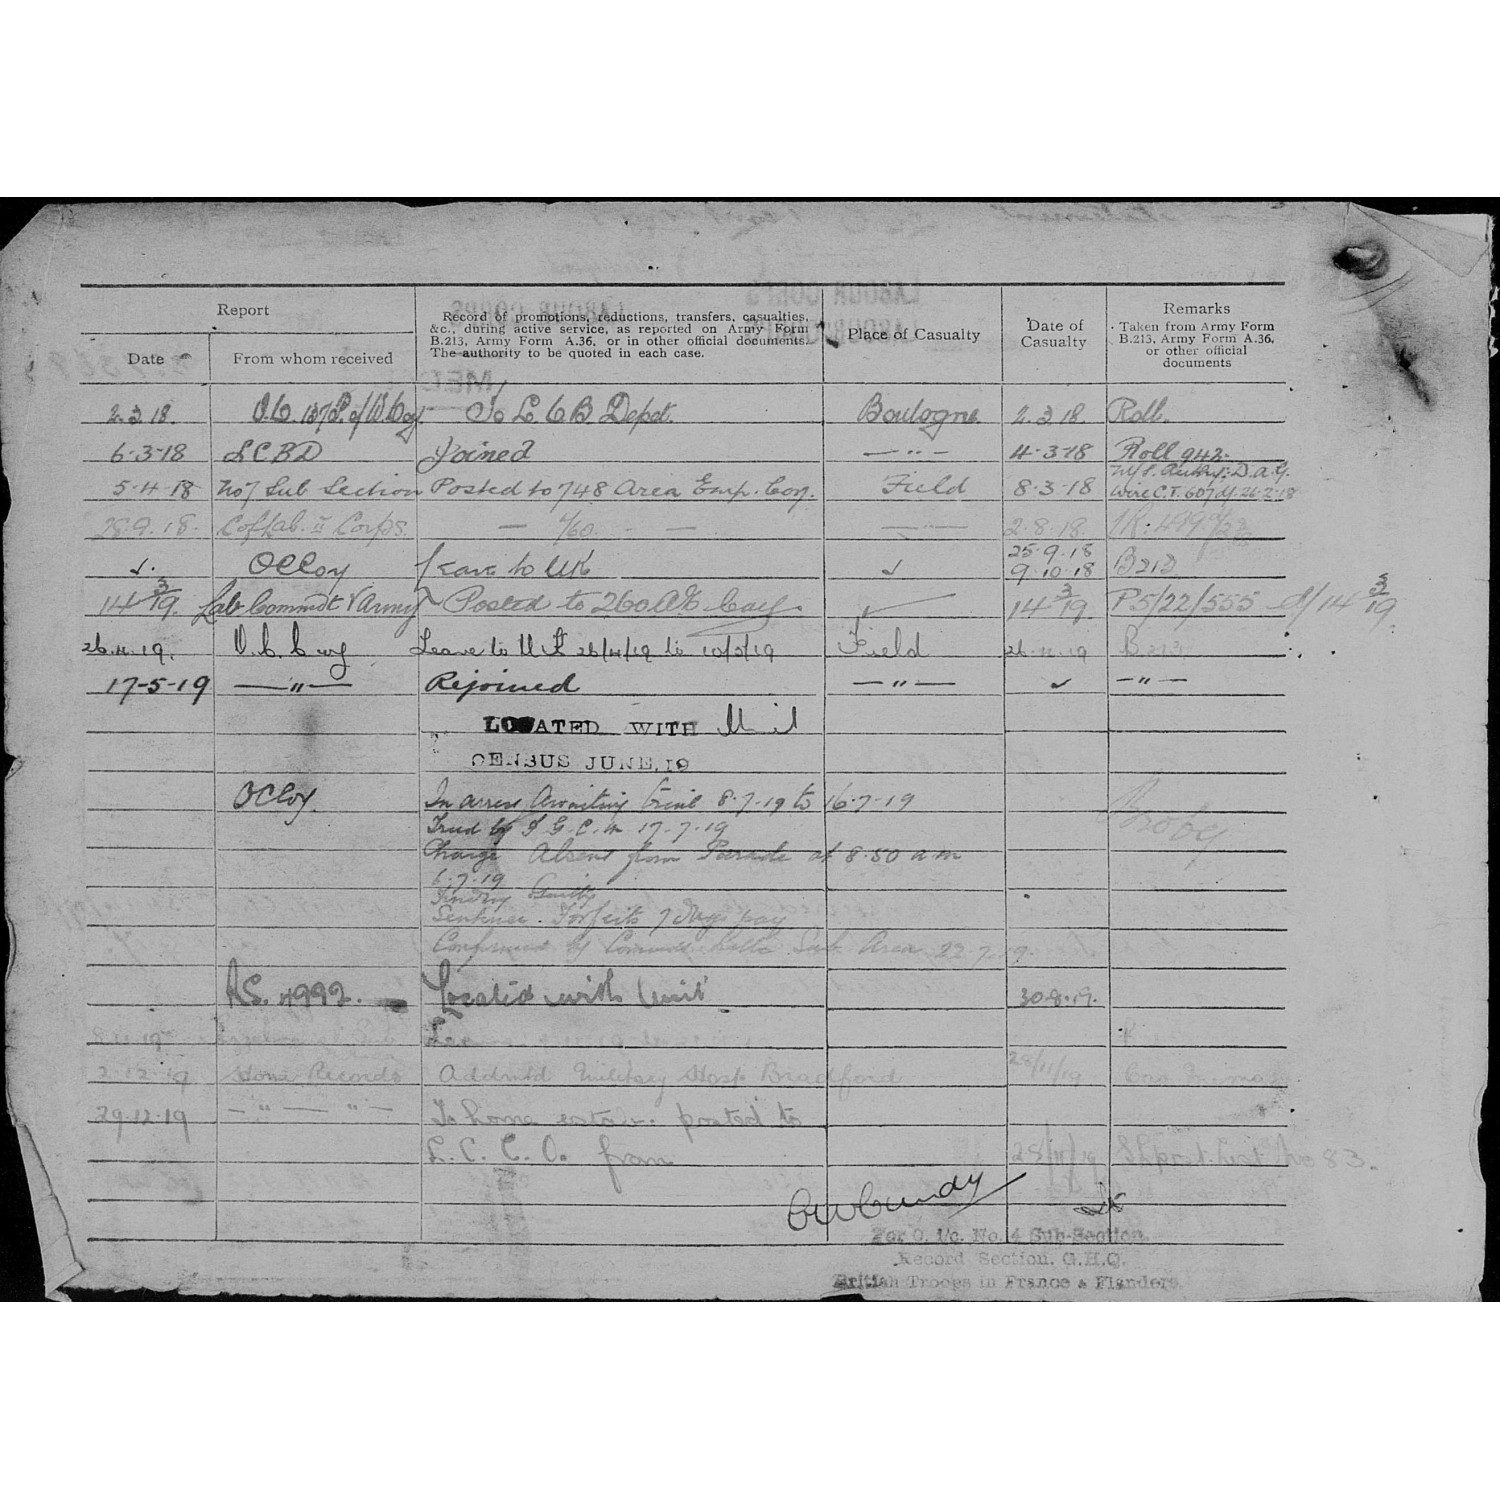 Report
Record of promotions, reductions, transfers, casualties, &c., during active service, as reported on Army Form B.213, Army Form A.36, or in other official documents. The authority to be quoted in each case.
Place of Casualty
Date of Casualty
Remarks
Taken from Army Form B.213, Army Form A.36, or other official documents
Date
From whom received
2.3.18. O.C. 137 P. of W. Coy. To L.C.B. Depot. Boulogne. 2.3.18. Roll.
6-3-18 LCBD Joined — " — 4-3-18 Roll 942.
5-4-18 No 7 Sub Section Posted to 748 Area Emp. Coy. Field 8-3-18 Auth: D.A.G. Wire C.T. 607 d/ 26-2-18
28.9.18. Lab. II Corps. 2.8.18
OCCoy Leave to UK 25.9.18 9.10.18 B213
14 3/19. Lab Commdt V Army Posted to 260 Coy. 14 3/19. P5/22/555 d/14 3/19.
26.4.19. O.C. Coy Leave to UK 26/4/19 to 10/5/19 Field 26.4.19 B213
17-5-19 — " — Rejoined — " — — " —
LOCATED WITH Unit
CENSUS JUNE, 19
OCCoy. In arrest Awaiting trial 8.7.19 to 16.7.19
Tried by F.G.C.M 17-7-19
Charge Absent from Parade at 8.50 am
6.7.19
Finding Guilty
Sentence. Forfeits 7 days pay
Confirmed by Area 22.7.19.
AS. 4992. Located with Unit 30.8.19.
2.12.19 Home Records Admitd Military Hosp Bradford 29/11/19
29.12.19 — " — " — To home estab. posted to
L.C.C.O. from 28/11/19 List No 83.
For O. i/c. No. 4 Sub-Section.
Record Section, G.H.Q.
British Troops in France & Flanders